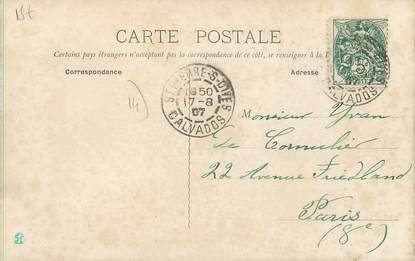 15t
CARTE POSTALE
Certains pays étrangers n'acceptant pas la correspondance de ce côté, se renseigner à la
Correspondance
Adresse
ST-PIERRE-S-DIVES
10 50
17-8
07
CALVADOS
CALVADOS
5
14
Monsieur Yvan
Le Cornulier
22 Avenue Friedland
Paris
(8e)